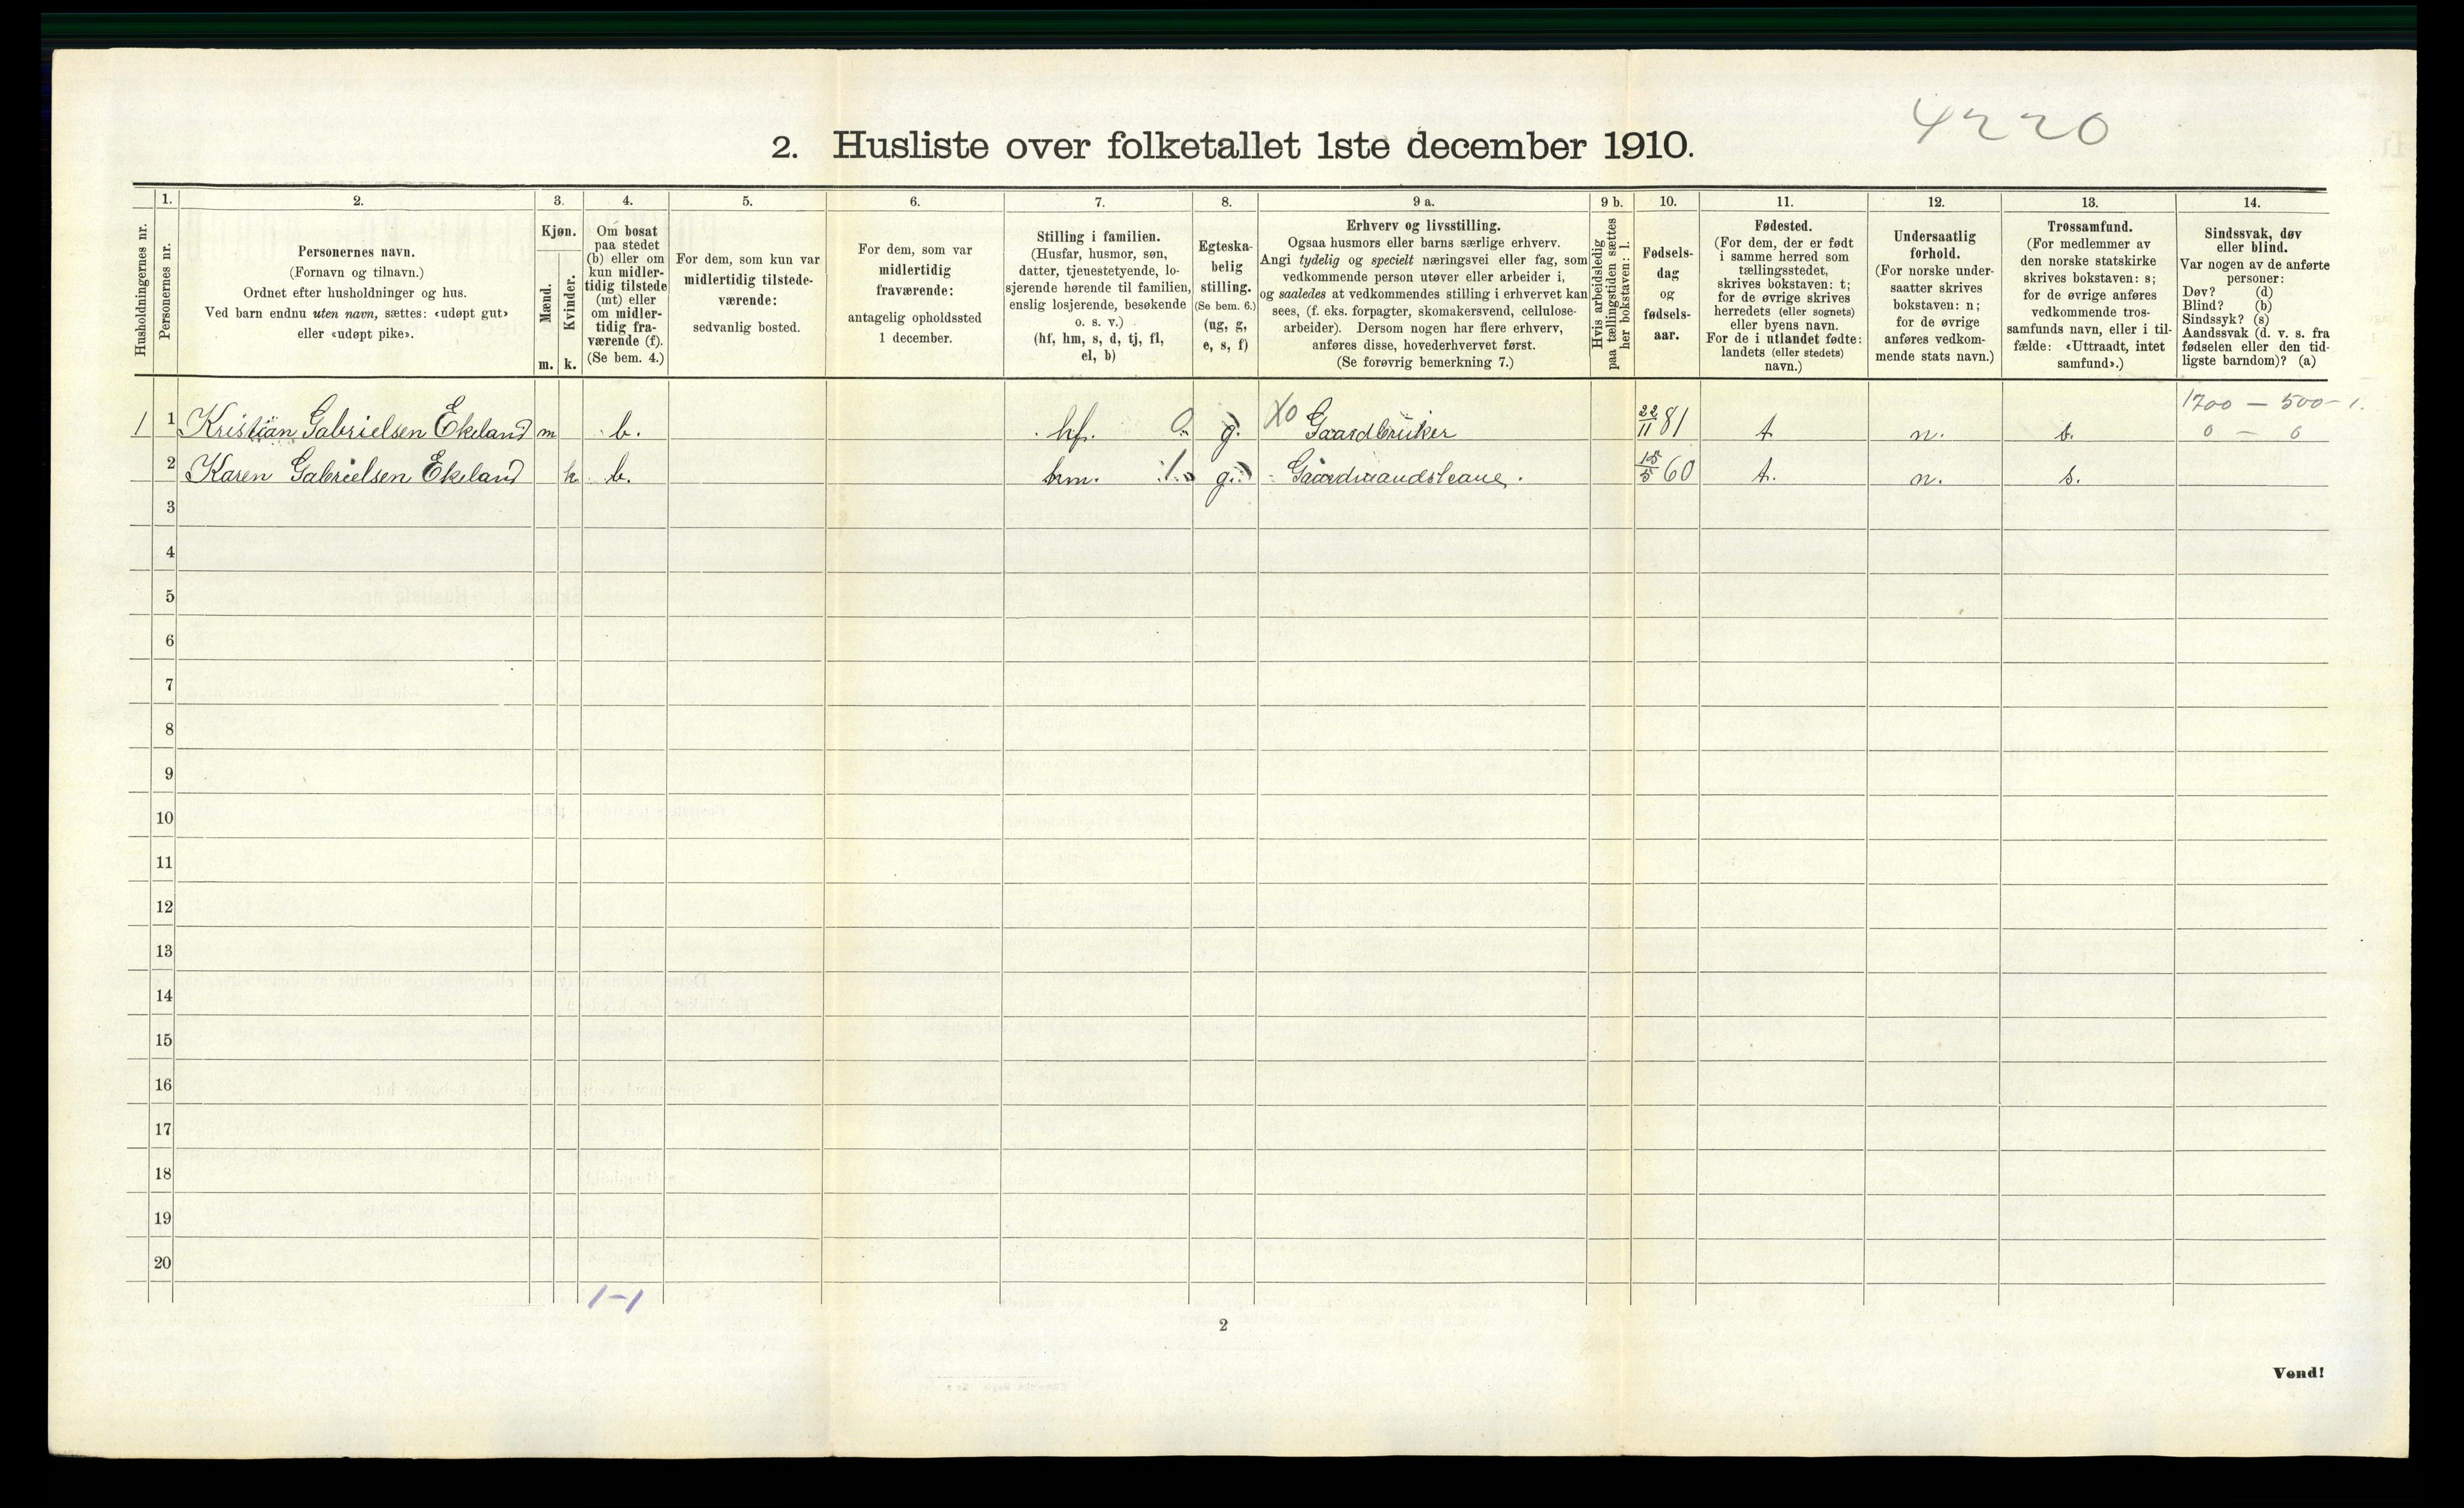 4220
2. Husliste over folketallet 1ste december 1910.
Husholdningernes nr.
1.
Personernes nr.
2.
Personernes navn.
(Fornavn og tilnavn.)
Ordnet efter husholdninger og hus.
Ved barn endnu uten navn, sættes: «udøpt gut»
eller «udøpt pike».
3.
Kjøn.
Mænd.
Kvinder.
m. k.
4.
Om bosat
paa stedet
(b) eller om
kun midler-
tidig tilstede
(mt) eller
om midler-
tidig fra-
værende (f).
(Se bem. 4.)
5.
For dem, som kun var
midlertidig tilstede-
værende:
sedvanlig bosted.
6.
For dem, som var
midlertidig
fraværende:
antagelig opholdssted
1 december.
7.
Stilling i familien.
(Husfar, husmor, søn,
datter, tjenestetyende, lo-
sjerende hørende til familien,
enslig losjerende, besøkende
o. s. v.)
(hf, hm, s, d, tj, fl,
el, b)
8.
Egteska-
belig
stilling.
(Se bem. 6.)
(ug, g,
e, s, f)
9 a.
Erhverv og livsstilling.
Ogsaa husmors eller barns særlige erhverv.
Angi tydelig og specielt næringsvei eller fag, som
vedkommende person utøver eller arbeider i,
og saaledes at vedkommendes stilling i erhvervet kan
sees, (f. eks. forpagter, skomakersvend, cellulose-
arbeider). Dersom nogen har flere erhverv,
anføres disse, hovederhvervet først.
(Se forøvrig bemerkning 7.)
9 b.
Hvis arbeidsledig
paa tællingstiden sættes
her bokstaven: l.
10.
Fødsels-
dag
og
fødsels-
aar.
11.
Fødested.
(For dem, der er født
i samme herred som
tællingsstedet,
skrives bokstaven: t;
for de øvrige skrives
herredets (eller sognets)
eller byens navn.
For de i utlandet fødte:
landets (eller stedets)
navn.)
12.
Undersaatlig
forhold.
(For norske under-
saatter skrives
bokstaven: n;
for de øvrige
anføres vedkom-
mende stats navn.)
13.
Trossamfund.
(For medlemmer av
den norske statskirke
skrives bokstaven: s;
for de øvrige anføres
vedkommende tros-
samfunds navn, eller i til-
fælde: «Uttraadt, intet
samfund».)
14.
Sindssvak, døv
eller blind.
Var nogen av de anførte
personer:
Døv? (d)
Blind? (b)
Sindssyk? (s)
Aandssvak (d. v. s. fra
fødselen eller den tid-
ligste barndom)? (a)
1700 — 500 — 1.
1 1 Kristian Gabrielsen Ekeland m b. hf. 0 g. X0 Gaardbruker 22/11 81 t. n. s. 0 — 0
2 Karen Gabrielsen Ekeland k b. hm. 1. g. Gaardmandskone. 15/5 60 t. n. s.
3
4
5
6
7
8
9
10
11
12
13
14
15
16
17
18
19
20
1-1
2
Vend!